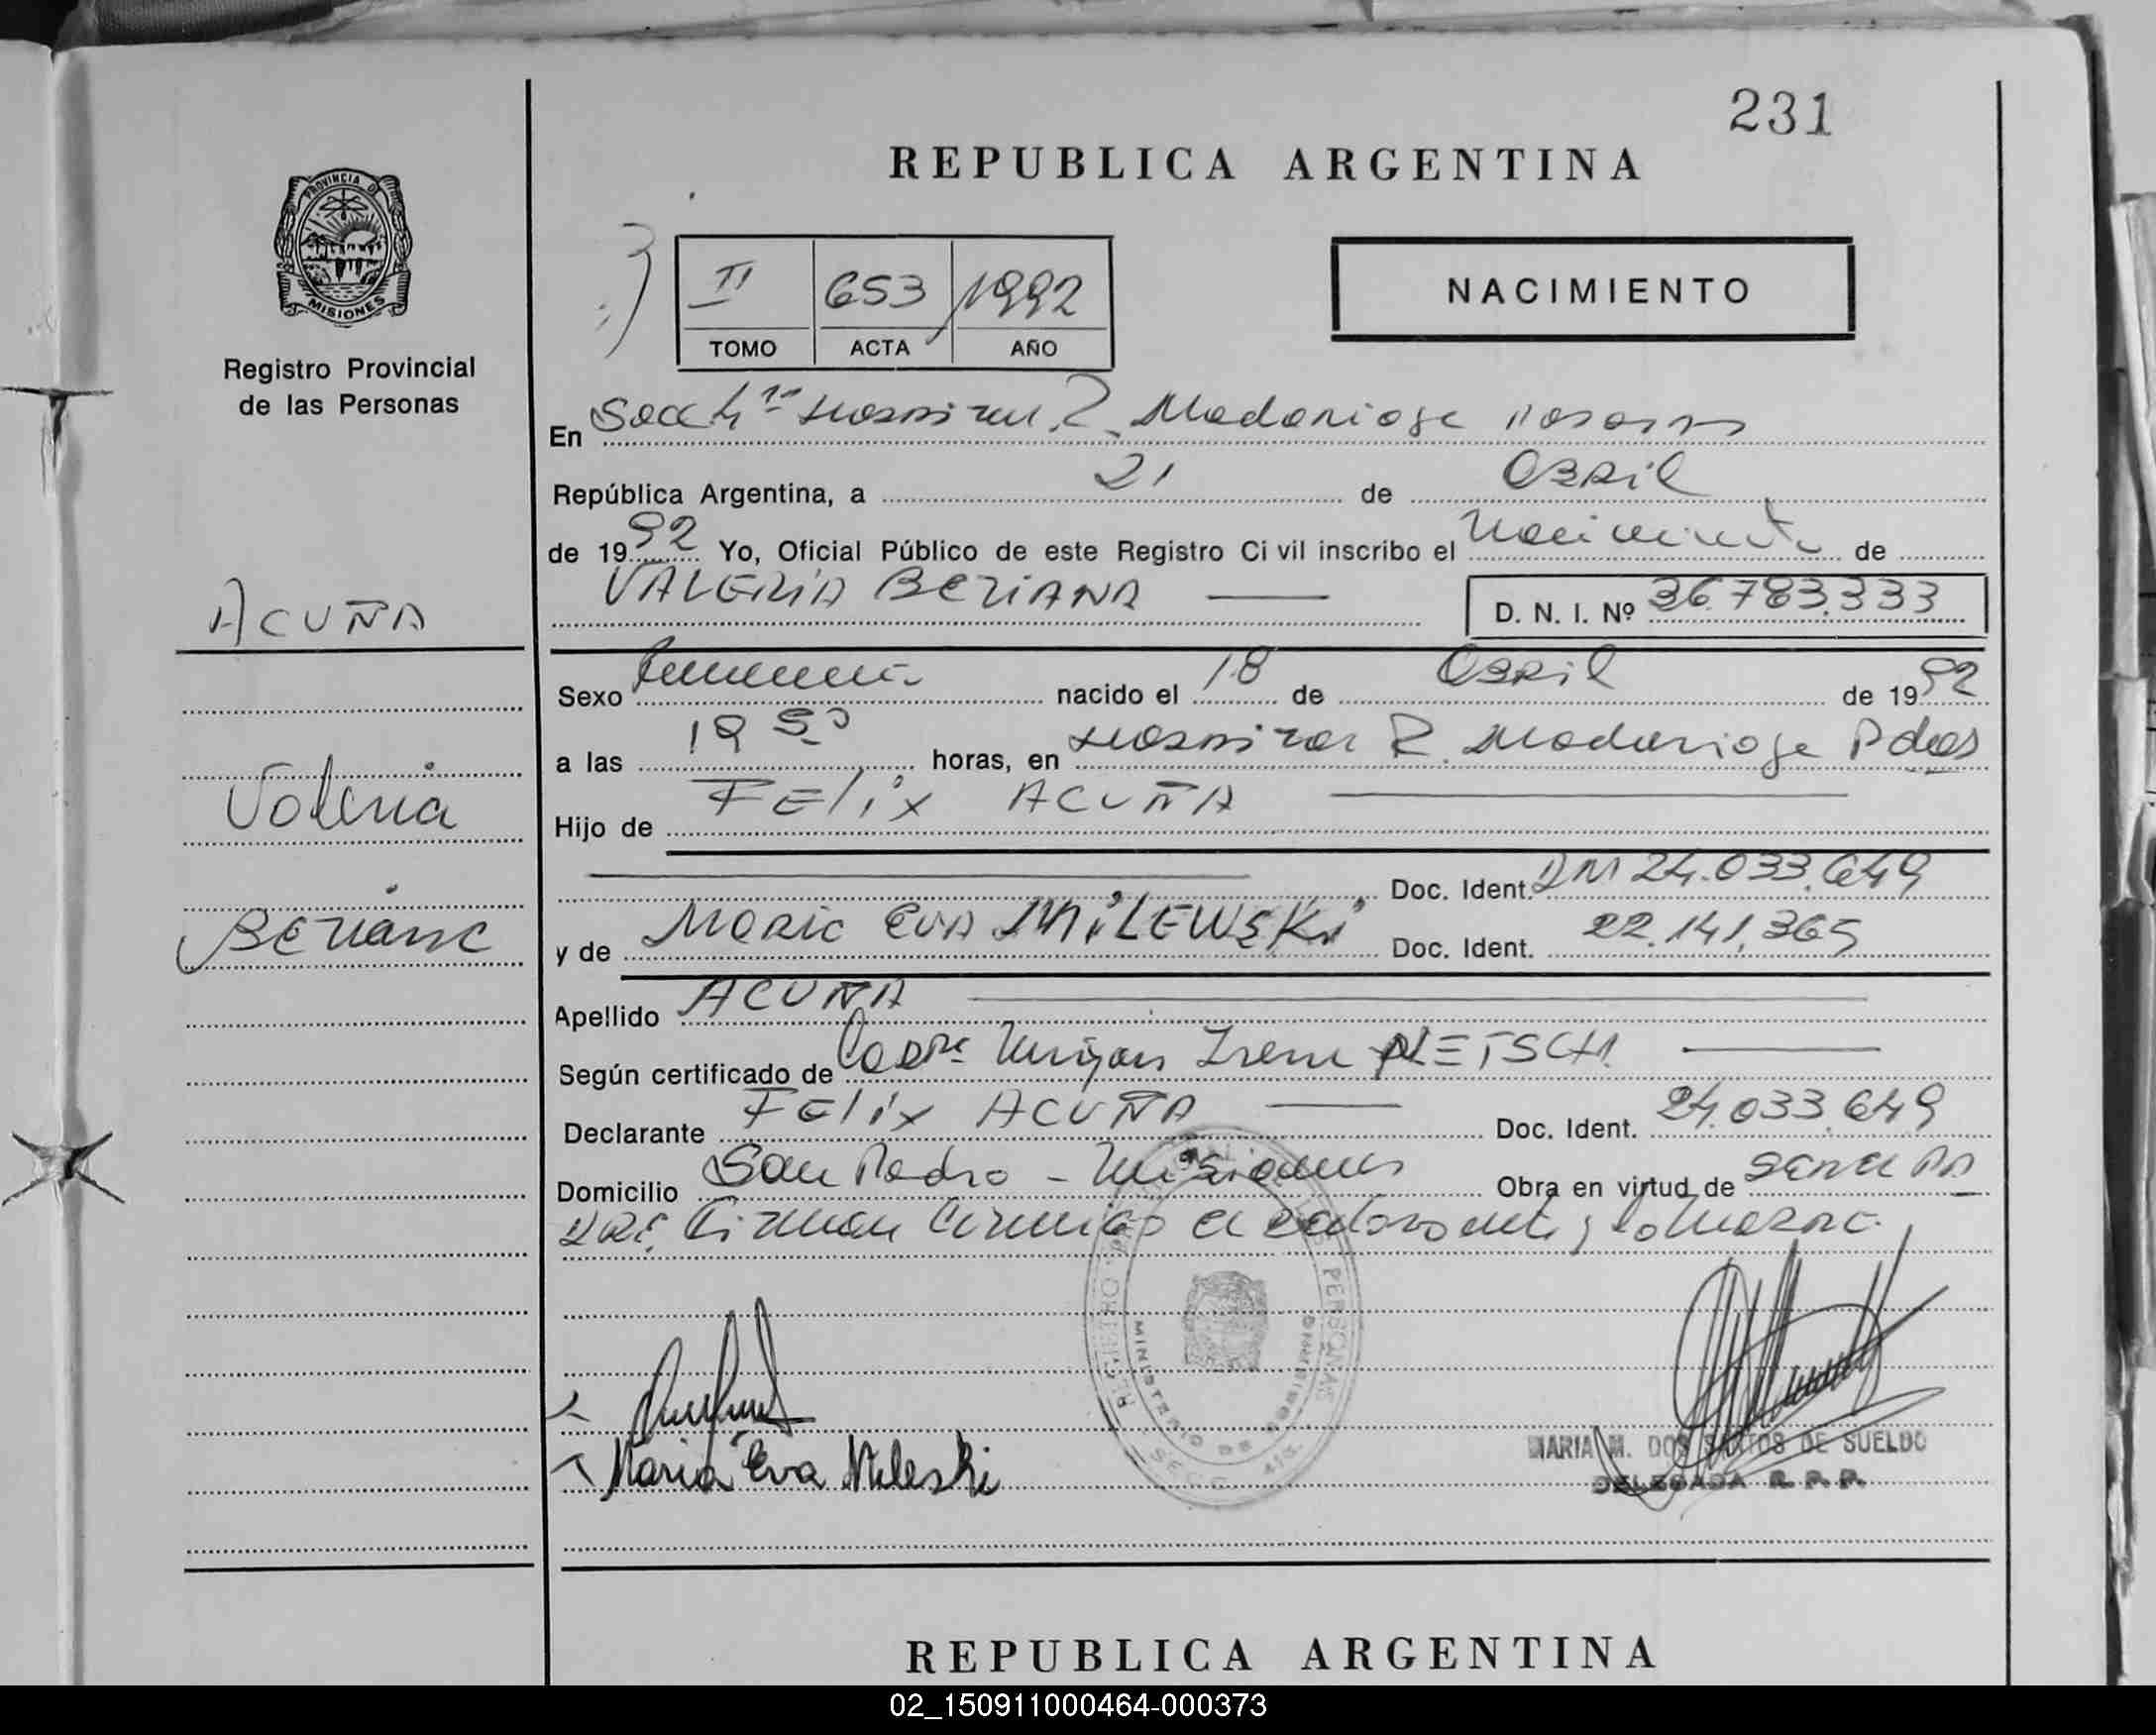 231
REPUBLICA ARGENTINA
PROVINCIA D
MISIONES
Registro Provincial
de las Personas
II 653 1992
TOMO ACTA AÑO
NACIMIENTO
En Secc 4ta Hospital R. Madariaga Posadas
República Argentina, a 21 de Abril
de 1992 Yo, Oficial Público de este Registro Civil inscribo el Nacimiento de
VALERIA BEZIANA D. N. I. Nº 36.783.333
ACUÑA
Valeria
Beziana
Sexo femenino nacido el 18 de Abril de 1992
a las 19 50 horas, en Hospital R. Madariaga Pdas
Hijo de Felix ACUÑA
Doc. Ident. DNI 24.033.649
y de Maria Eva MiLEWSKi Doc. Ident. 22.141.365
Apellido ACUÑA
Según certificado de Obstra Mirian Irene
Declarante Felix ACUÑA Doc. Ident. 24.033.649
Domicilio San Pedro - Misiones Obra en virtud de ser el pa
dre. Firman conmigo el declarante y la madre.
REGISTRO PERSONAS
MINISTERIO DE GOBIERNO
SECC. 4ta.
Maria Eva Mileski
MARIA M. DOS SANTOS DE SUELDO
DELEGADA R. P. P.
REPUBLICA ARGENTINA
02_150911000464-000373